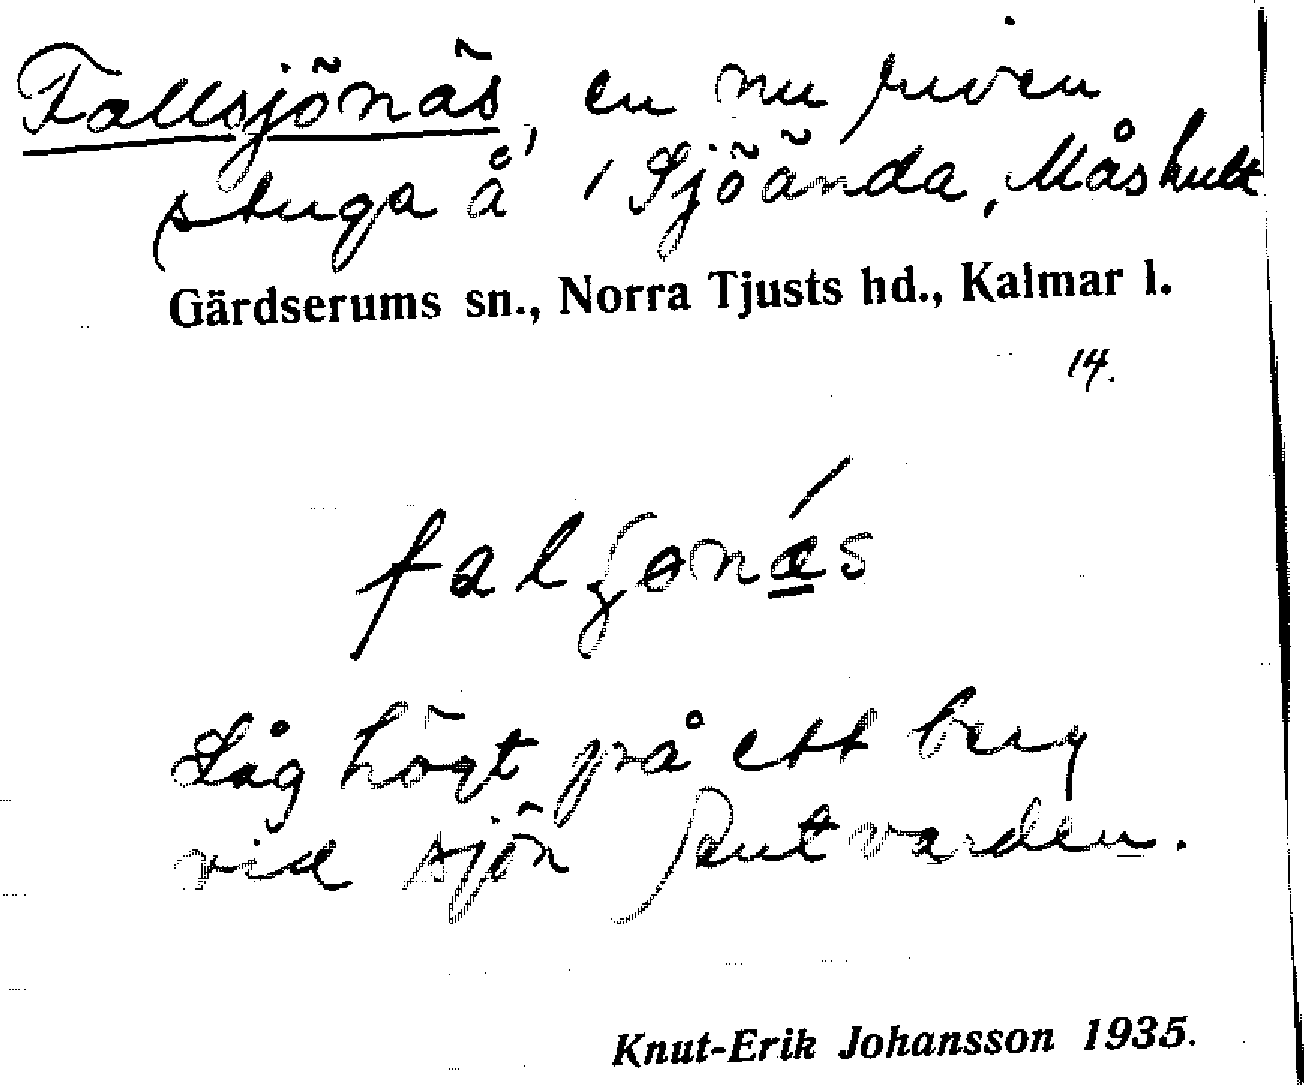 Fallsjönäs, en nu riven
stuga å Sjöända, Måshult
Gärdserums sn., Norra Tjusts hd., Kalmar l.
14.
Låg högt på ett berg
vid sjön
Knut-Erik Johansson 1935.